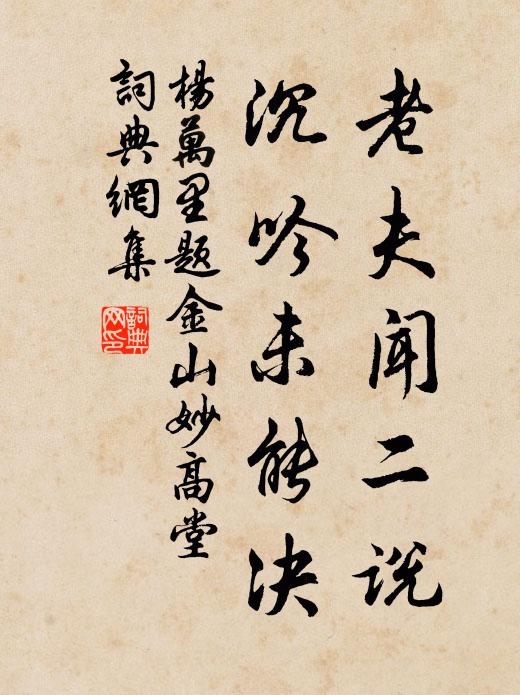 老夫闻二说
沉吟未能决
楊萬里题金山妙高堂
詞典網集
詞典网印